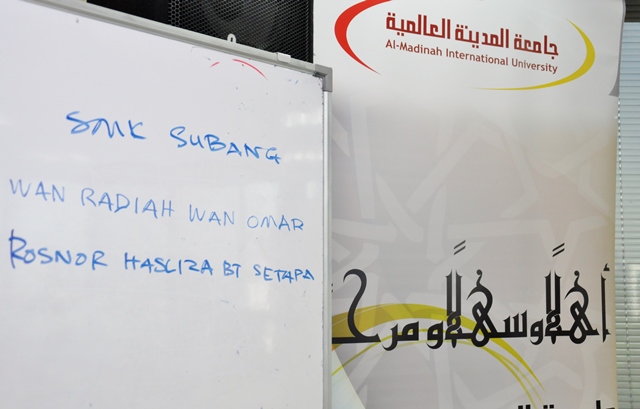 SMK SUBANG
WAN RADIAH WAN OMAR
ROSNOR HASLIZA BT SETAPA
جامعة المدينة العالمية
Al-Madinah International University
أهلاً وسهلاً و مرحـ